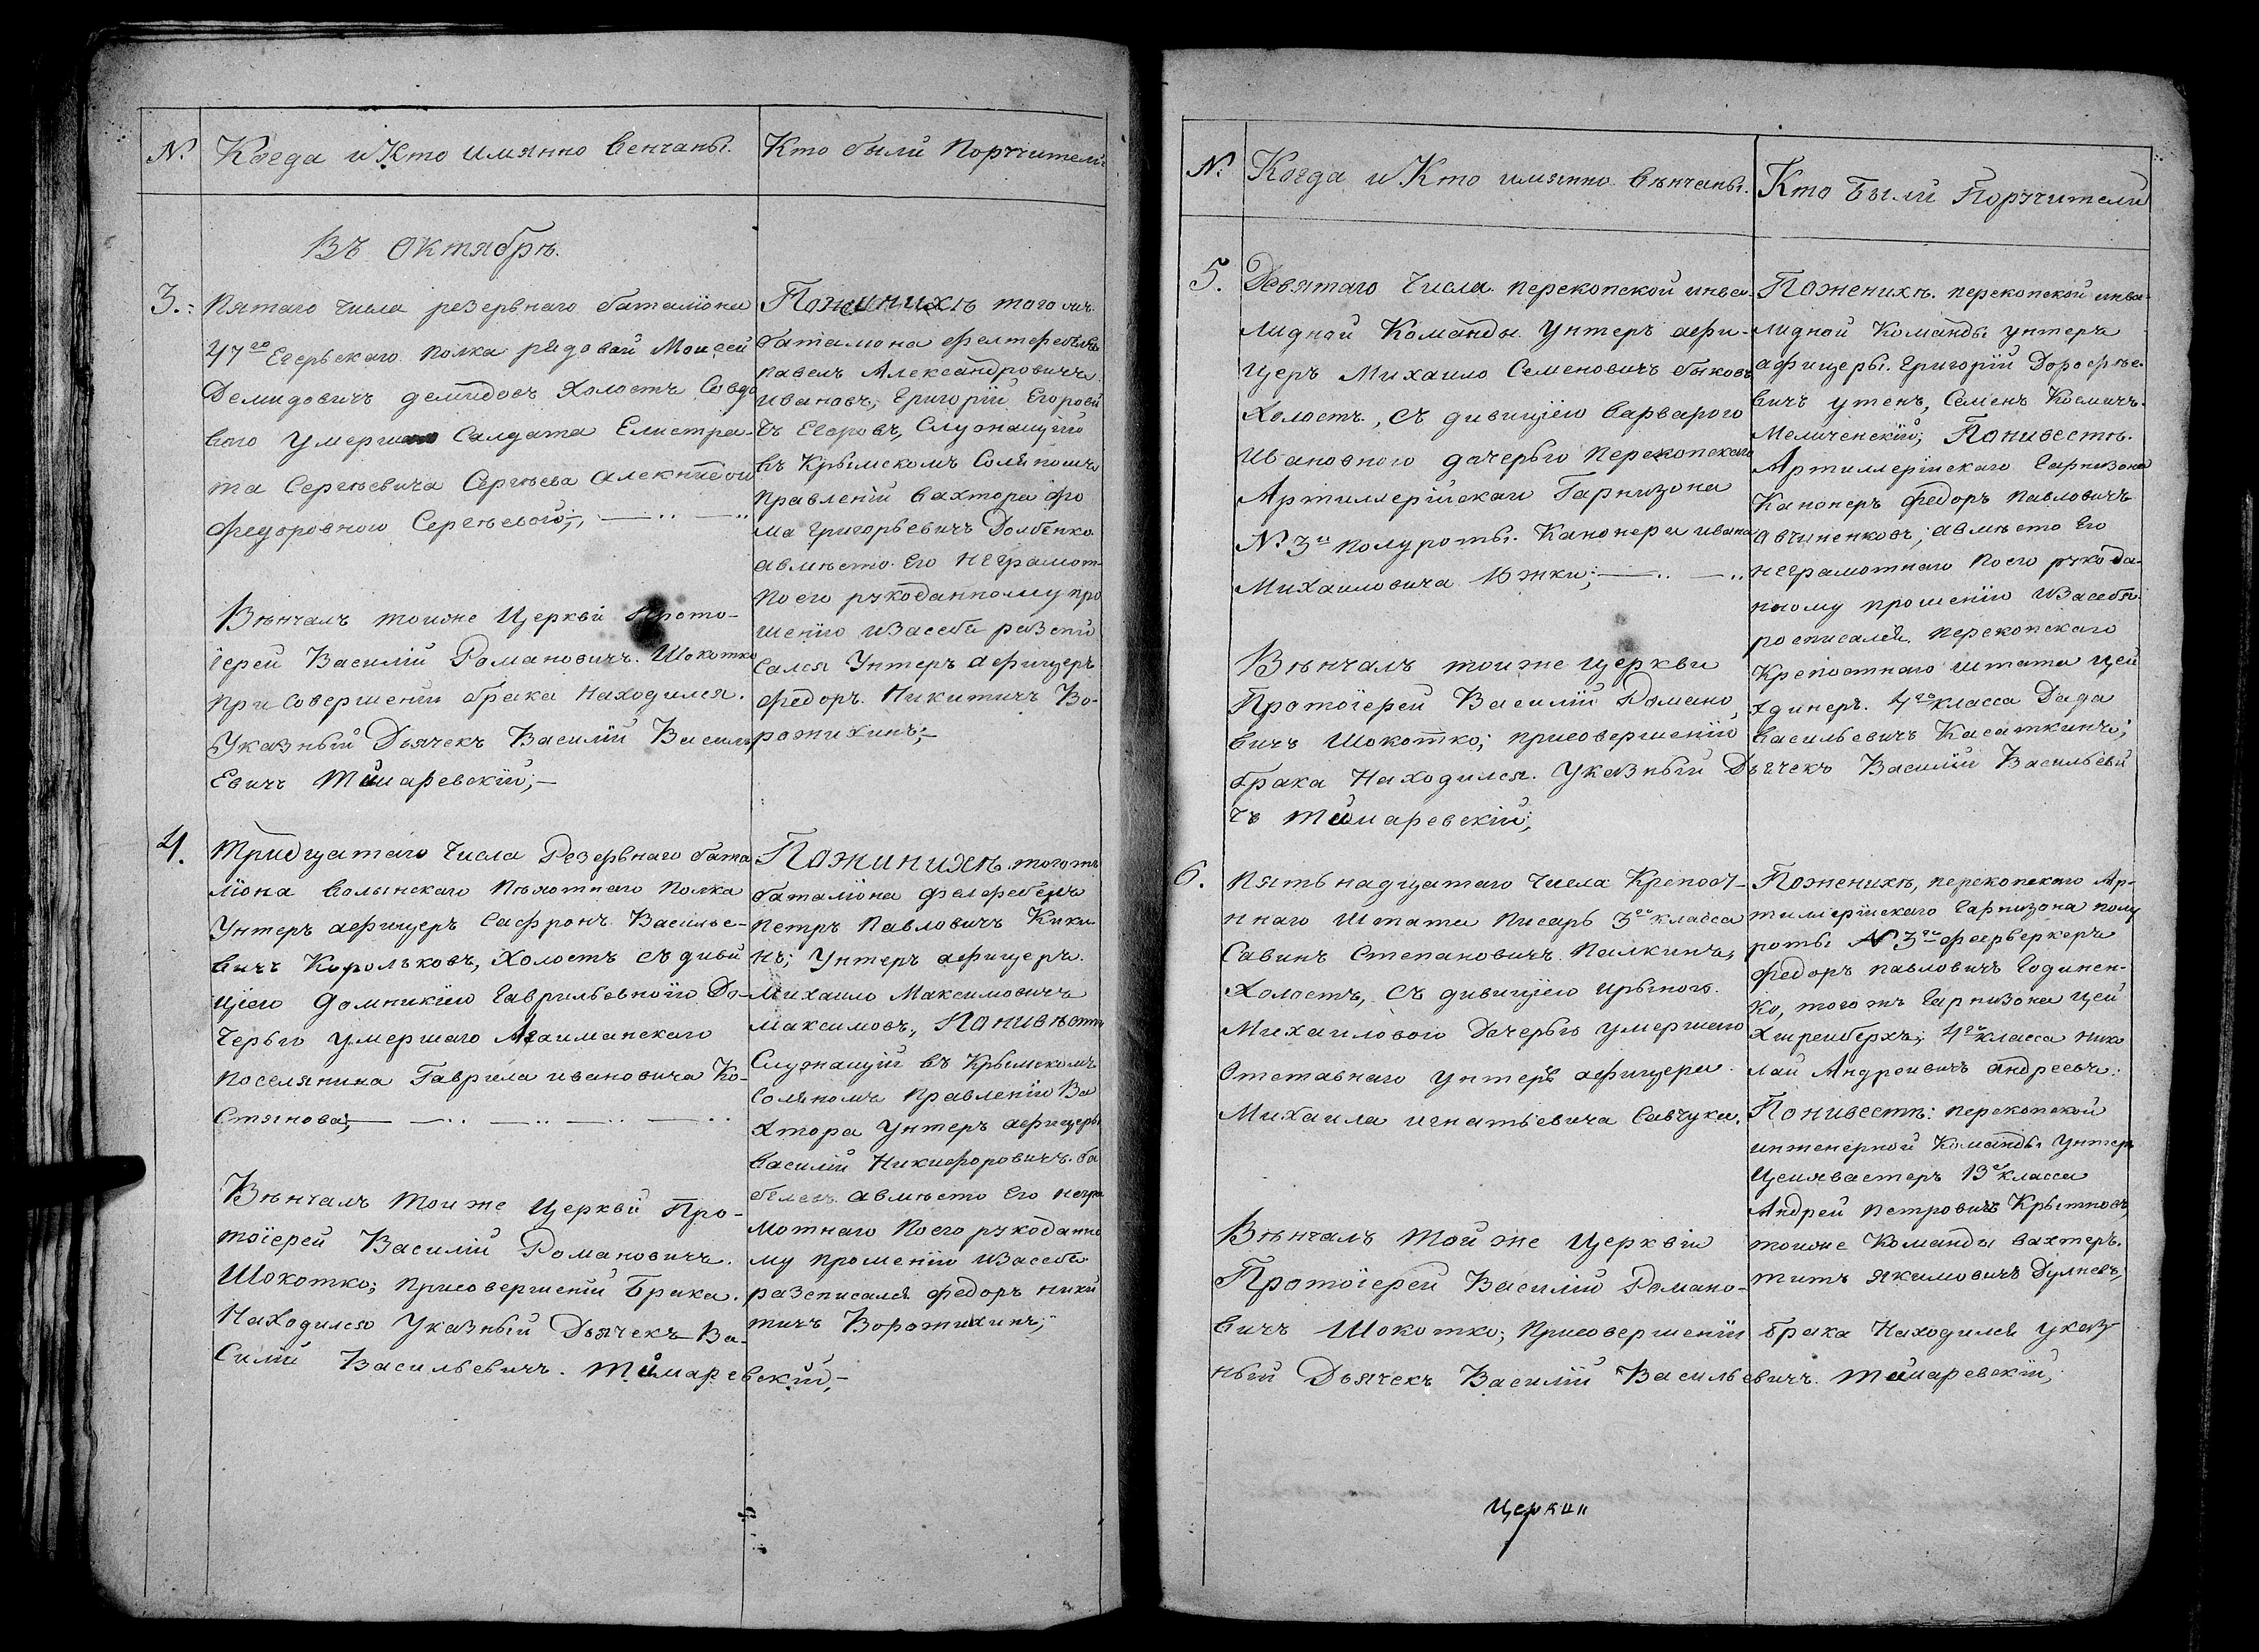 №. Когда и Кто имянно венчаны. Кто были Поручители
Въ Октябрѣ.
3. Пятаго числа резервнаго баталіона
47го Егерьскаго полка рядовой Моисей
Демидовичъ демидовъ Холостъ Совдо
вою умершаго Салдата Елистра-
та Сергѣевича Сергѣева
Федоровною Сергѣевою;
Вѣнчалъ тоиже Церкви Прото-
іерей Василій Романовичъ Шокотко
при Совершеніи брака находился.
Указный Дьячекъ Василій Василь
Евичъ Тимаревскій;
Пожинихѣ тогожъ
баталіона фелтфебель
павелъ Александровичъ
ивановъ, Григорій Егорови
чъ Егоровъ, Служащий
въ Крымскомъ Соляномъ
правленіи вахтера фо
ма григорьевичъ Долбенко
авмѣсто Его неграмот-
по его рукоданному про
шенію изасебя разспи
сался Унтеръ афицеръ
федоръ Никитичъ Во-
ротихинъ;
4. Тридцатаго числа Резервнаго бата
ліона волынскаго пѣхотнаго полка
Унтеръ афицеръ Сафронъ Василье-
вичъ Корольковъ, Холостъ съ диви
цею Домникіею гаврильевною До-
черью умершаго Агаиманскаго
поселянина Гаврила ивановича Ко-
стянова;
Вѣнчалъ Тоиже Церкви Про-
тоіерей Василій Романовичъ.
Шокотко; присовершеніи Брака.
Находился Указный Дьячекъ Ва-
силій Васильевичъ. Тимаревскій;
Пожинихѣ тогожъ
баталіона фелфебель
петръ Павловичъ Кики
нъ; Унтеръ афицеръ.
Михаило Максимовичъ
максимовъ, Понивѣстѣ
Служащій въ Крымскомъ
Соляномъ правленіи Ва
хтора Унтеръ афицеръ
Василій Никифоровичъ ба
авмѣсто Его негра
мотнаго поего рукоданно
му прошенію изасебя
разсписался федоръ ники
тичъ Воротихинъ;
№. Когда и Кто имянно вѣнчаны. Кто Были Поручители
5. Девятаго числа перекопской инва-
лидной Команды Унтеръ афи-
церъ Михаило Семеновичъ быковъ
Холостъ, съ дивицію варварою
ивановною дочерью перекопскаго
Артиллерійскаи Гарнизона
№ 3й полуроты. Канонера ивана
Михаиловича Южки;
Вѣнчалъ тоиже церкви
Протоіерей Василій Романо
вичъ Шокотко; присовершеніи
брака Находился. Указный Дьячекъ Василій Васильеви
чъ тимаревскій;
Поженихѣ. перекопской инва-
лидной Команды унтеръ
афицеры. Григорій Дорофѣе-
вичъ утенъ, Семенъ Космичъ
Меличенскій; Понивестѣ.
Артиллерійскаго гарнизона
Канонеръ федоръ павловичъ
овчиненковъ; авмѣсто Его
неграмотнаго поего рукода-
нному прошенію изасебя
росписался. перекопскаго
Крепостнаго штата цей
хдинеръ. 4го класса Дада
васильевичъ Касаткинъ;
6. Пятьнадцатаго числа Крепост-
ннаго Штата писарь 3го класса
Савинъ Степановичъ Палкинъ,
Холостъ, съ дивицію ирыною
Михаиловою дочерью умершаго
Отставнаго унтеръ афицера
Михаила игнатьевича Савчука.
Вѣнчалъ Тойже Церкви
Протоіерей Василій Романо-
вичъ Шокотко; Присовершеніи брака Находился указ
ный Дьячекъ Василій Васильевичъ. Тимаревскій;
Поженихѣ, перекопскаго Ар-
тилерійскаго гарнизона полу
роты № 3го феерверкеръ
федоръ павловичъ Годинен-
ко, тогожъ гарнизона цей
хшрейберхъ; 4го класса Нико
лай Андреивичъ андреевъ:
Понивестѣ: перекопской
инженерной Команды Унтеръ
13го класса
Андрей петровичъ
тоиже Команды вахтеръ.
титъ якимовичъ
Церкви